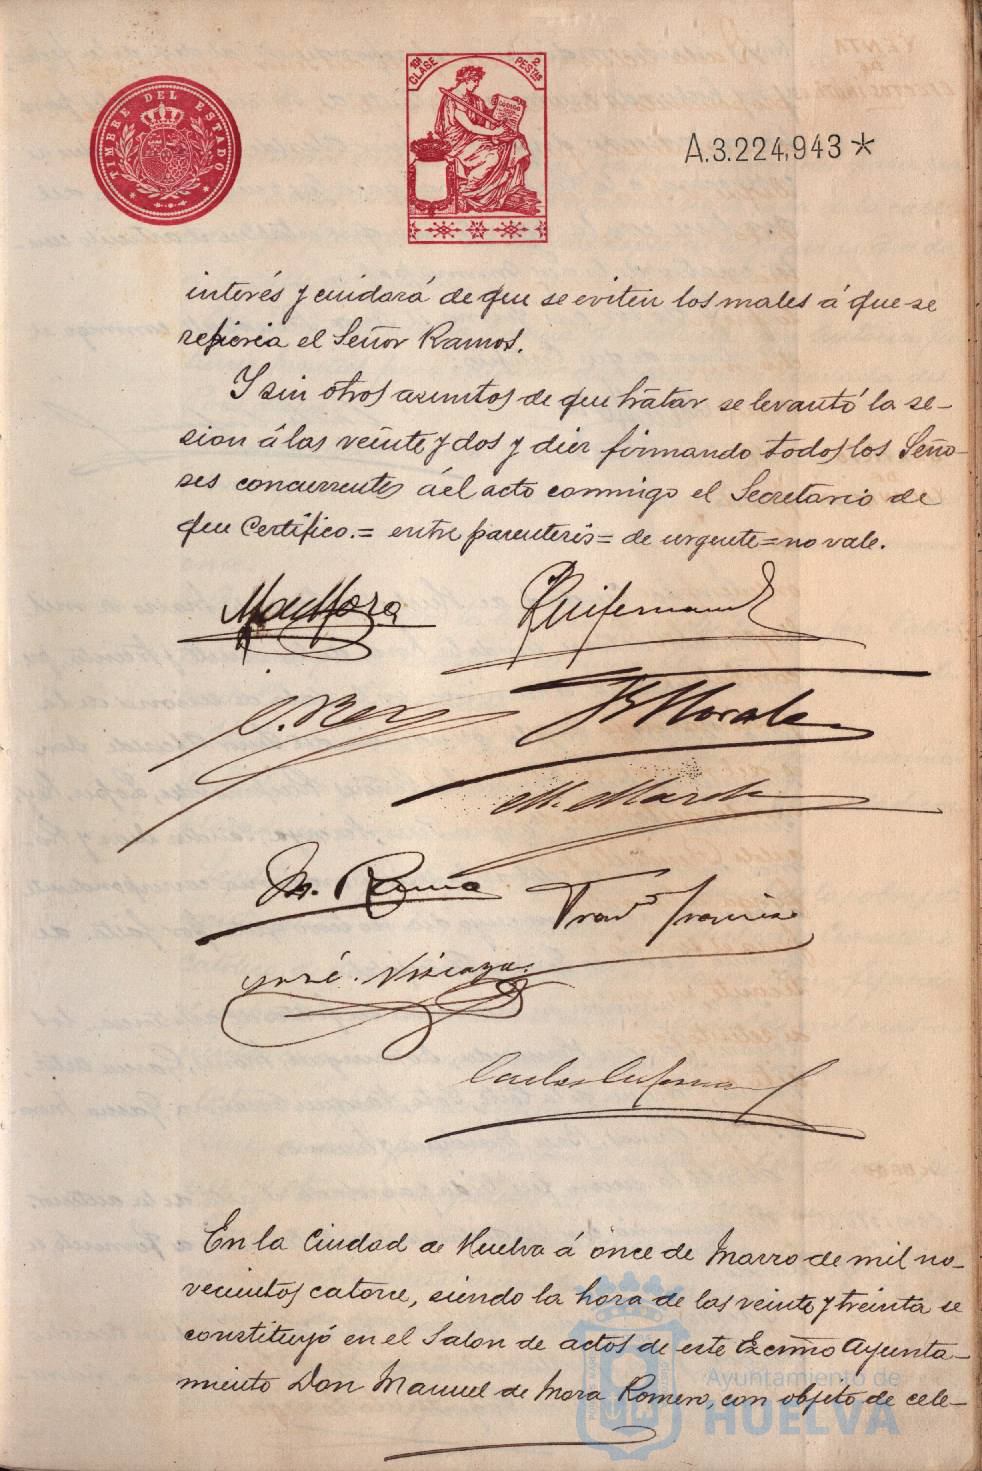 TIMBRE DEL ESTADO
10ª CLASE
2 PESTAS
CODIGO
A.3.224,943 *
interés y cuidará de que se eviten los males á que se
referia el Señor Ramos.
Y sin otros asuntos de que tratar se levantó la se-
sion á las veinte y dos y diez firmando todos los Seño-
res concurrentes á el acto conmigo el Secretario de
que Certifico.= entre parenteris= de urgente=no vale.
M de Mora
J. Morales
M.
José Vizcaya.
En la Ciudad de Huelva á once de Marzo de mil no-
vecientos catorce, siendo la hora de las veinte y treinta se
constituyó en el Salon de actos de este Excmo Ayunta-
miento Don Manuel de Mora Romero, con objeto de cele-
Ayuntamiento de
HUELVA